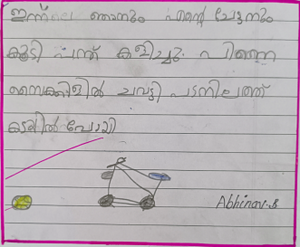 ഇന്നലെ ഞാനും എന്റെ ചേട്ടനും
കൂടി പന്ത് കളിച്ചു. പിന്നെ
സൈക്കിളിൽ ചവട്ടി പടനിലത്ത്
കടയിൽ പോയി
Abhinav.S